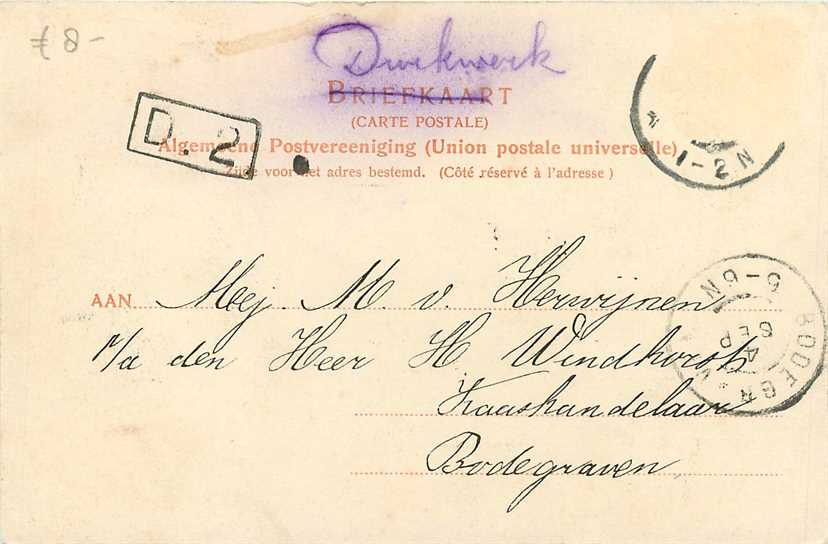 £ 8-
Drukwerk
BRIEFKAART
(CARTE POSTALE)
Algemeene Postvereeniging (Union postale universelle)
Zijde voor het adres bestemd. (Côté réservé à l'adresse)
D. 2
1-2 N
AAN Mej M. v. Herwijnen
p/a den Heer H. Windhorst
Kaashandelaar
Bodegraven
BODEGR
4 SEP
5-6N